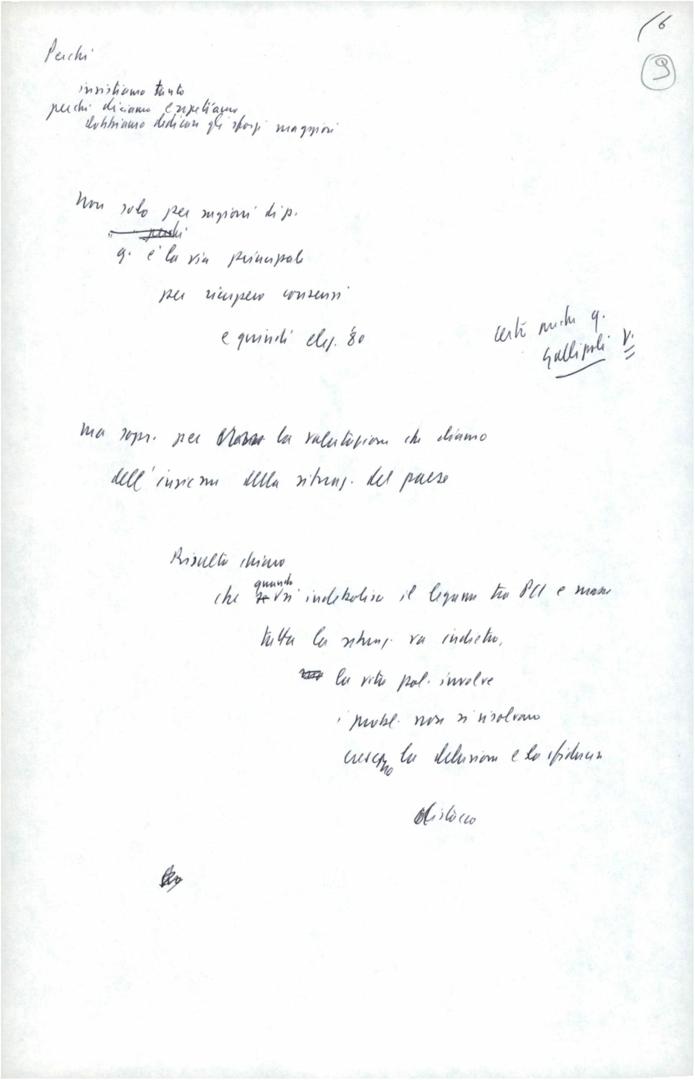 16
9
Perché
insistiamo tanto
perché diciamo e ripetiamo
dobbiamo dedicare gli sforzi maggiori
Non solo per ragioni di p.
perché
q. è la via principale
per recupero consensi
e quindi elez. '80
certo anche q.
Gallipoli V.
Ma sopr. per la valutazione che diamo
dell'insieme della situaz. del paese
Risulta chiaro
che quando si indebolisce il legame tra PCI e masse
tutta la situaz. va indietro,
la vita pol. involve
i probl. non si risolvono
crescono la delusione e la sfiducia
distacco